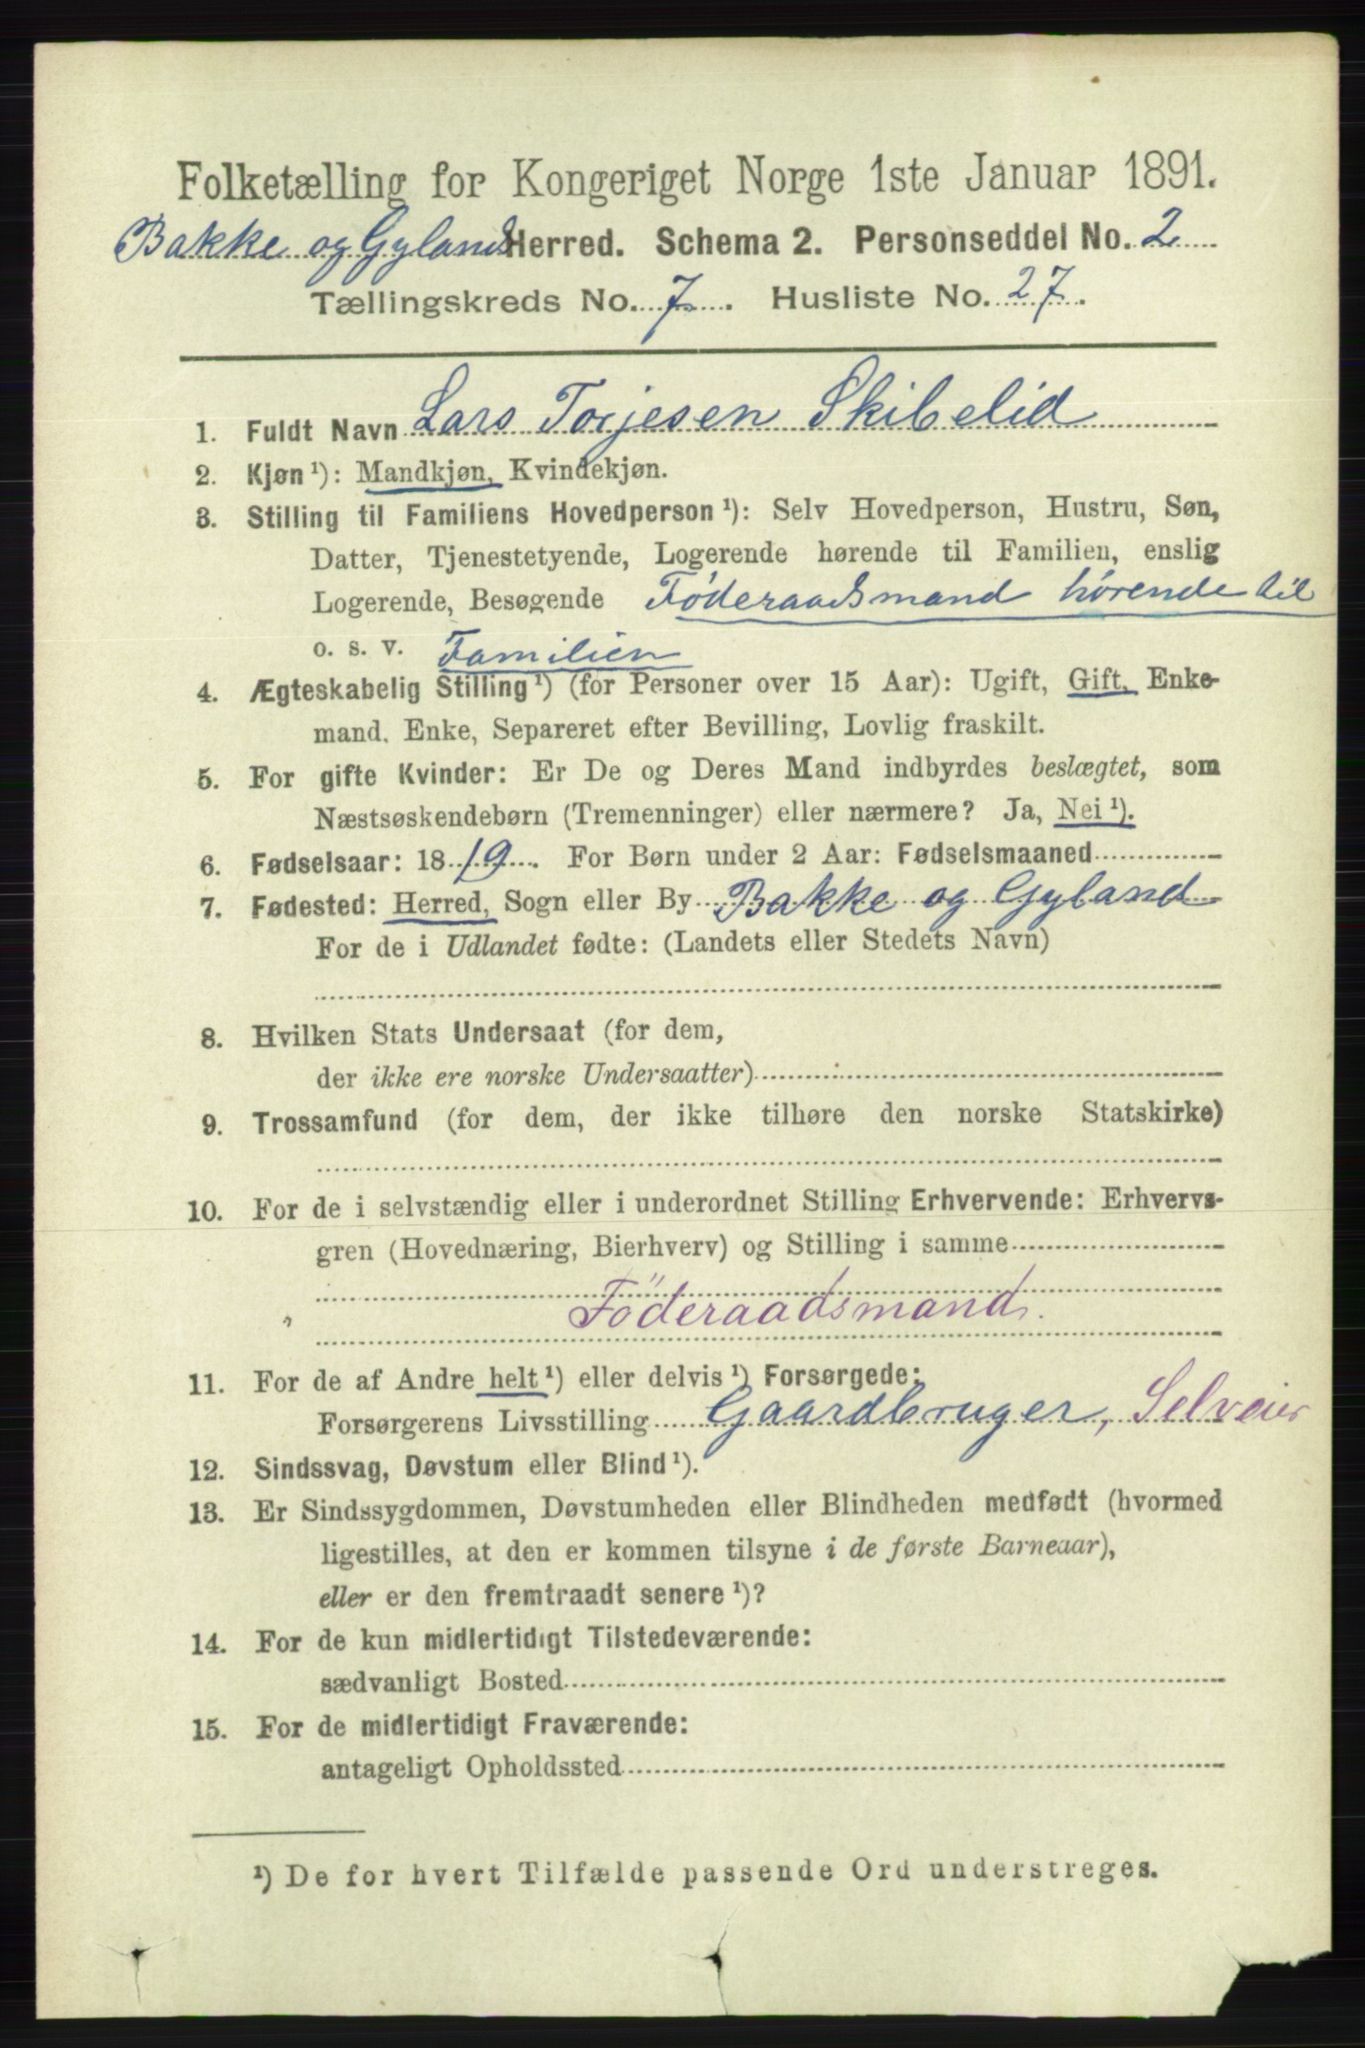 Folketælling for Kongeriget Norge 1ste Januar 1891.
Bakke og Gylands Herred. Schema 2. Personseddel No. 2
Tællingskreds No. 7. Husliste No. 27.
1. Fuldt Navn Lars Torjesen Skibelid
2. Kjøn ¹): Mandkjøn, Kvindekjøn.
3. Stilling til Familiens Hovedperson ¹): Selv Hovedperson, Hustru, Søn,
Datter, Tjenestetyende, Logerende hørende til Familien, enslig
Logerende, Besøgende Föderaadsmand hörende til
o. s. v. Familien
4. Ægteskabelig Stilling ¹) (for Personer over 15 Aar): Ugift, Gift, Enke-
mand, Enke, Separeret efter Bevilling, Lovlig fraskilt.
5. For gifte Kvinder: Er De og Deres Mand indbyrdes beslægtet, som
Næstsøskendebørn (Tremenninger) eller nærmere? Ja, Nei ¹).
6. Fødselsaar: 1819. For Børn under 2 Aar: Fødselsmaaned
7. Fødested: Herred, Sogn eller By Bakke og Gyland
For de i Udlandet fødte: (Landets eller Stedets Navn)
8. Hvilken Stats Undersaat (for dem,
der ikke ere norske Undersaatter)
9. Trossamfund (for dem, der ikke tilhøre den norske Statskirke)
10. For de i selvstændig eller i underordnet Stilling Erhvervende: Erhvervs-
gren (Hovednæring, Bierhverv) og Stilling i samme
Föderaadsmand.
11. For de af Andre helt ¹) eller delvis ¹) Forsørgede:
Forsørgerens Livsstilling Gaardbruger, Selveier
12. Sindssvag, Døvstum eller Blind ¹).
13. Er Sindssygdommen, Døvstumheden eller Blindheden medfødt (hvormed
ligestilles, at den er kommen tilsyne i de første Barneaar),
eller er den fremtraadt senere ¹)?
14. For de kun midlertidigt Tilstedeværende:
sædvanligt Bosted
15. For de midlertidigt Fraværende:
antageligt Opholdssted
¹) De for hvert Tilfælde passende Ord understreges.